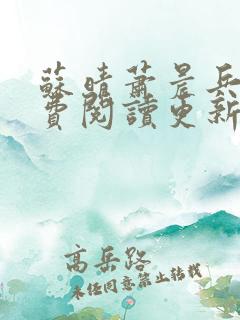 蘇晴蕭晨兵
費閱讀更新
高岳路
未经同意禁止转载